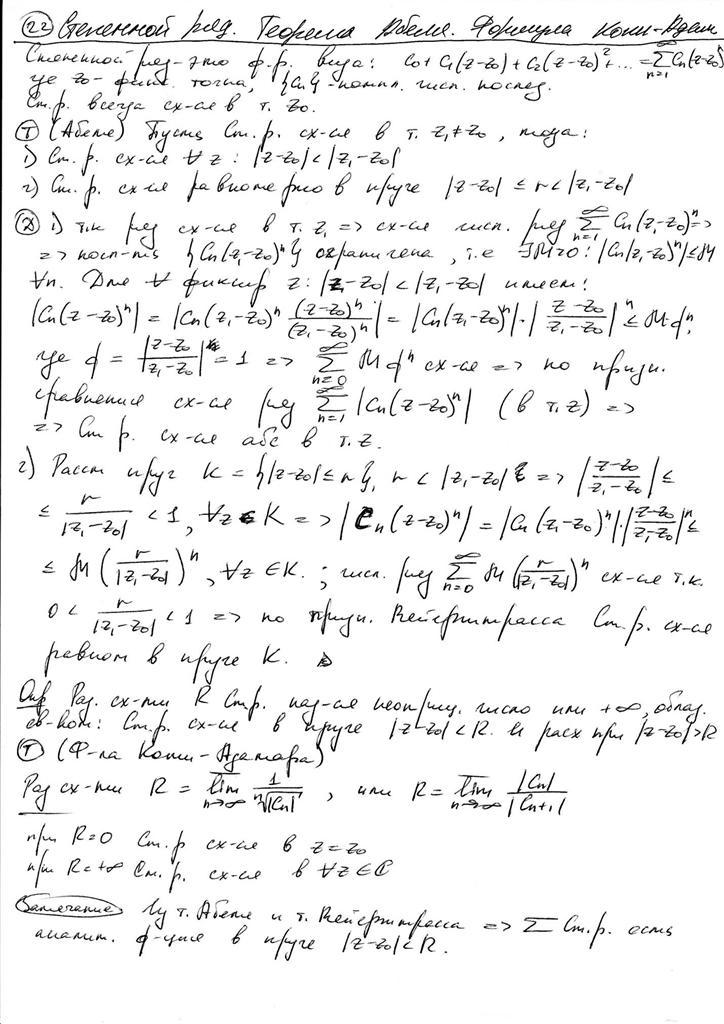 (22) Степенной ряд. Теорема Абеля. Формула Коши-Адам
Степенной ряд-это ф.р. вида: C₀ + C₁(z-z₀) + C₂(z-z₀)² + ... = ∑_{n=1}^∞ Cₙ(z-z₀)ⁿ
где z₀- фикс. точка, {Cₙ} -компл. числ. послед.
Ст.р. всегда сх-ся в т. z₀.
(Т) (Абеля) Пусть Ст.р. сх-ся в т. z₁≠z₀, тогда:
1) Ст.р. сх-ся ∀z: |z-z₀|<|z₁-z₀|
2) Ст.р. сх-ся равномерно в круге |z-z₀| ≤ r < |z₁-z₀|
(Д) 1) т.к ряд сх-ся в т. z₁ => сх-ся числ. ряд ∑_{n=1}^∞ Cₙ(z₁-z₀)ⁿ =>
=> посл-ть {Cₙ(z₁-z₀)ⁿ} ограничена, т.е ∃M>0: |Cₙ(z₁-z₀)ⁿ| ≤ M
∀n. Для ∀ фиксир z: |z-z₀|<|z₁-z₀| имеем:
|Cₙ(z-z₀)ⁿ| = |Cₙ(z₁-z₀)ⁿ (z-z₀)ⁿ/(z₁-z₀)ⁿ| = |Cₙ(z₁-z₀)ⁿ|·|(z-z₀)/(z₁-z₀)|ⁿ ≤ M·qⁿ,
где q = |z-z₀|/|z₁-z₀| = 1 => ∑_{n=0}^∞ M qⁿ сх-ся => по призн.
сравнения сх-ся ряд ∑_{n=1}^∞ |Cₙ(z-z₀)ⁿ| (в т.z) =>
=> Ст р. сх-ся абс в т. z.
2) Рассм круг K = {|z-z₀| ≤ r}, r < |z₁-z₀| => |(z-z₀)/(z₁-z₀)| ≤
≤ r/|z₁-z₀| < 1, ∀z∈K => |Cₙ(z-z₀)ⁿ| = |Cₙ(z₁-z₀)ⁿ|·|(z-z₀)/(z₁-z₀)|ⁿ ≤
≤ M (r/|z₁-z₀|)ⁿ, ∀z∈K. ; числ. ряд ∑_{n=0}^∞ M (r/|z₁-z₀|)ⁿ сх-ся т.к.
0 < r/|z₁-z₀| < 1 => по призн. Вейерштрасса Ст.р. сх-ся
равном в круге K. ▷
Опр Рад. сх-ти R Ст.р. наз-ся неотриц. число или +∞, облад.
св-вом: Ст.р. сх-ся в круге |z-z₀|<R. И расх при |z-z₀|>R
(Т) (Ф-ла Коши-Адамара)
Рад сх-ти R = lim_{n→∞} 1/ⁿ√|Cₙ| , или R = lim_{n→∞} |Cₙ|/|Cₙ₊₁|
при R=0 Ст.р сх-ся в z=z₀
при R=+∞ Ст.р. сх-ся в ∀z∈ℂ
Замечание Из т. Абеля и т. Вейерштрасса => ∑ Ст.р. есть
аналит. ф-ция в круге |z-z₀|<R.